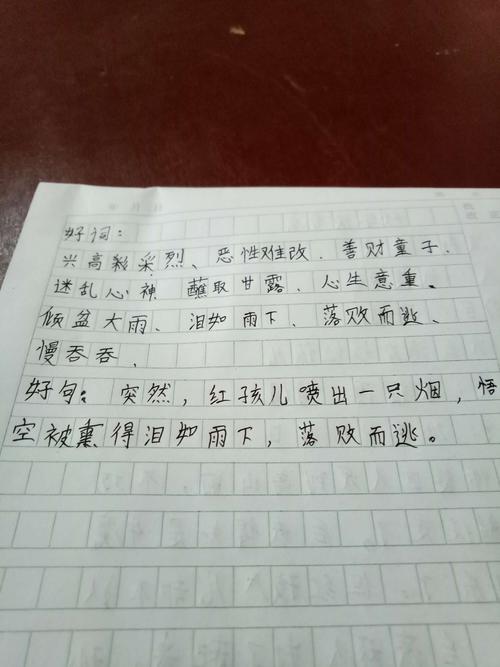 好词：
兴高彩采烈、恶性难改、善财童子、
迷乱心神、蘸取甘露、心生意重。
倾盆大雨、泪如雨下、落败而逃、
慢吞吞、
好句：突然，红孩儿喷出一只烟，悟
空被熏得泪如雨下，落败而逃。